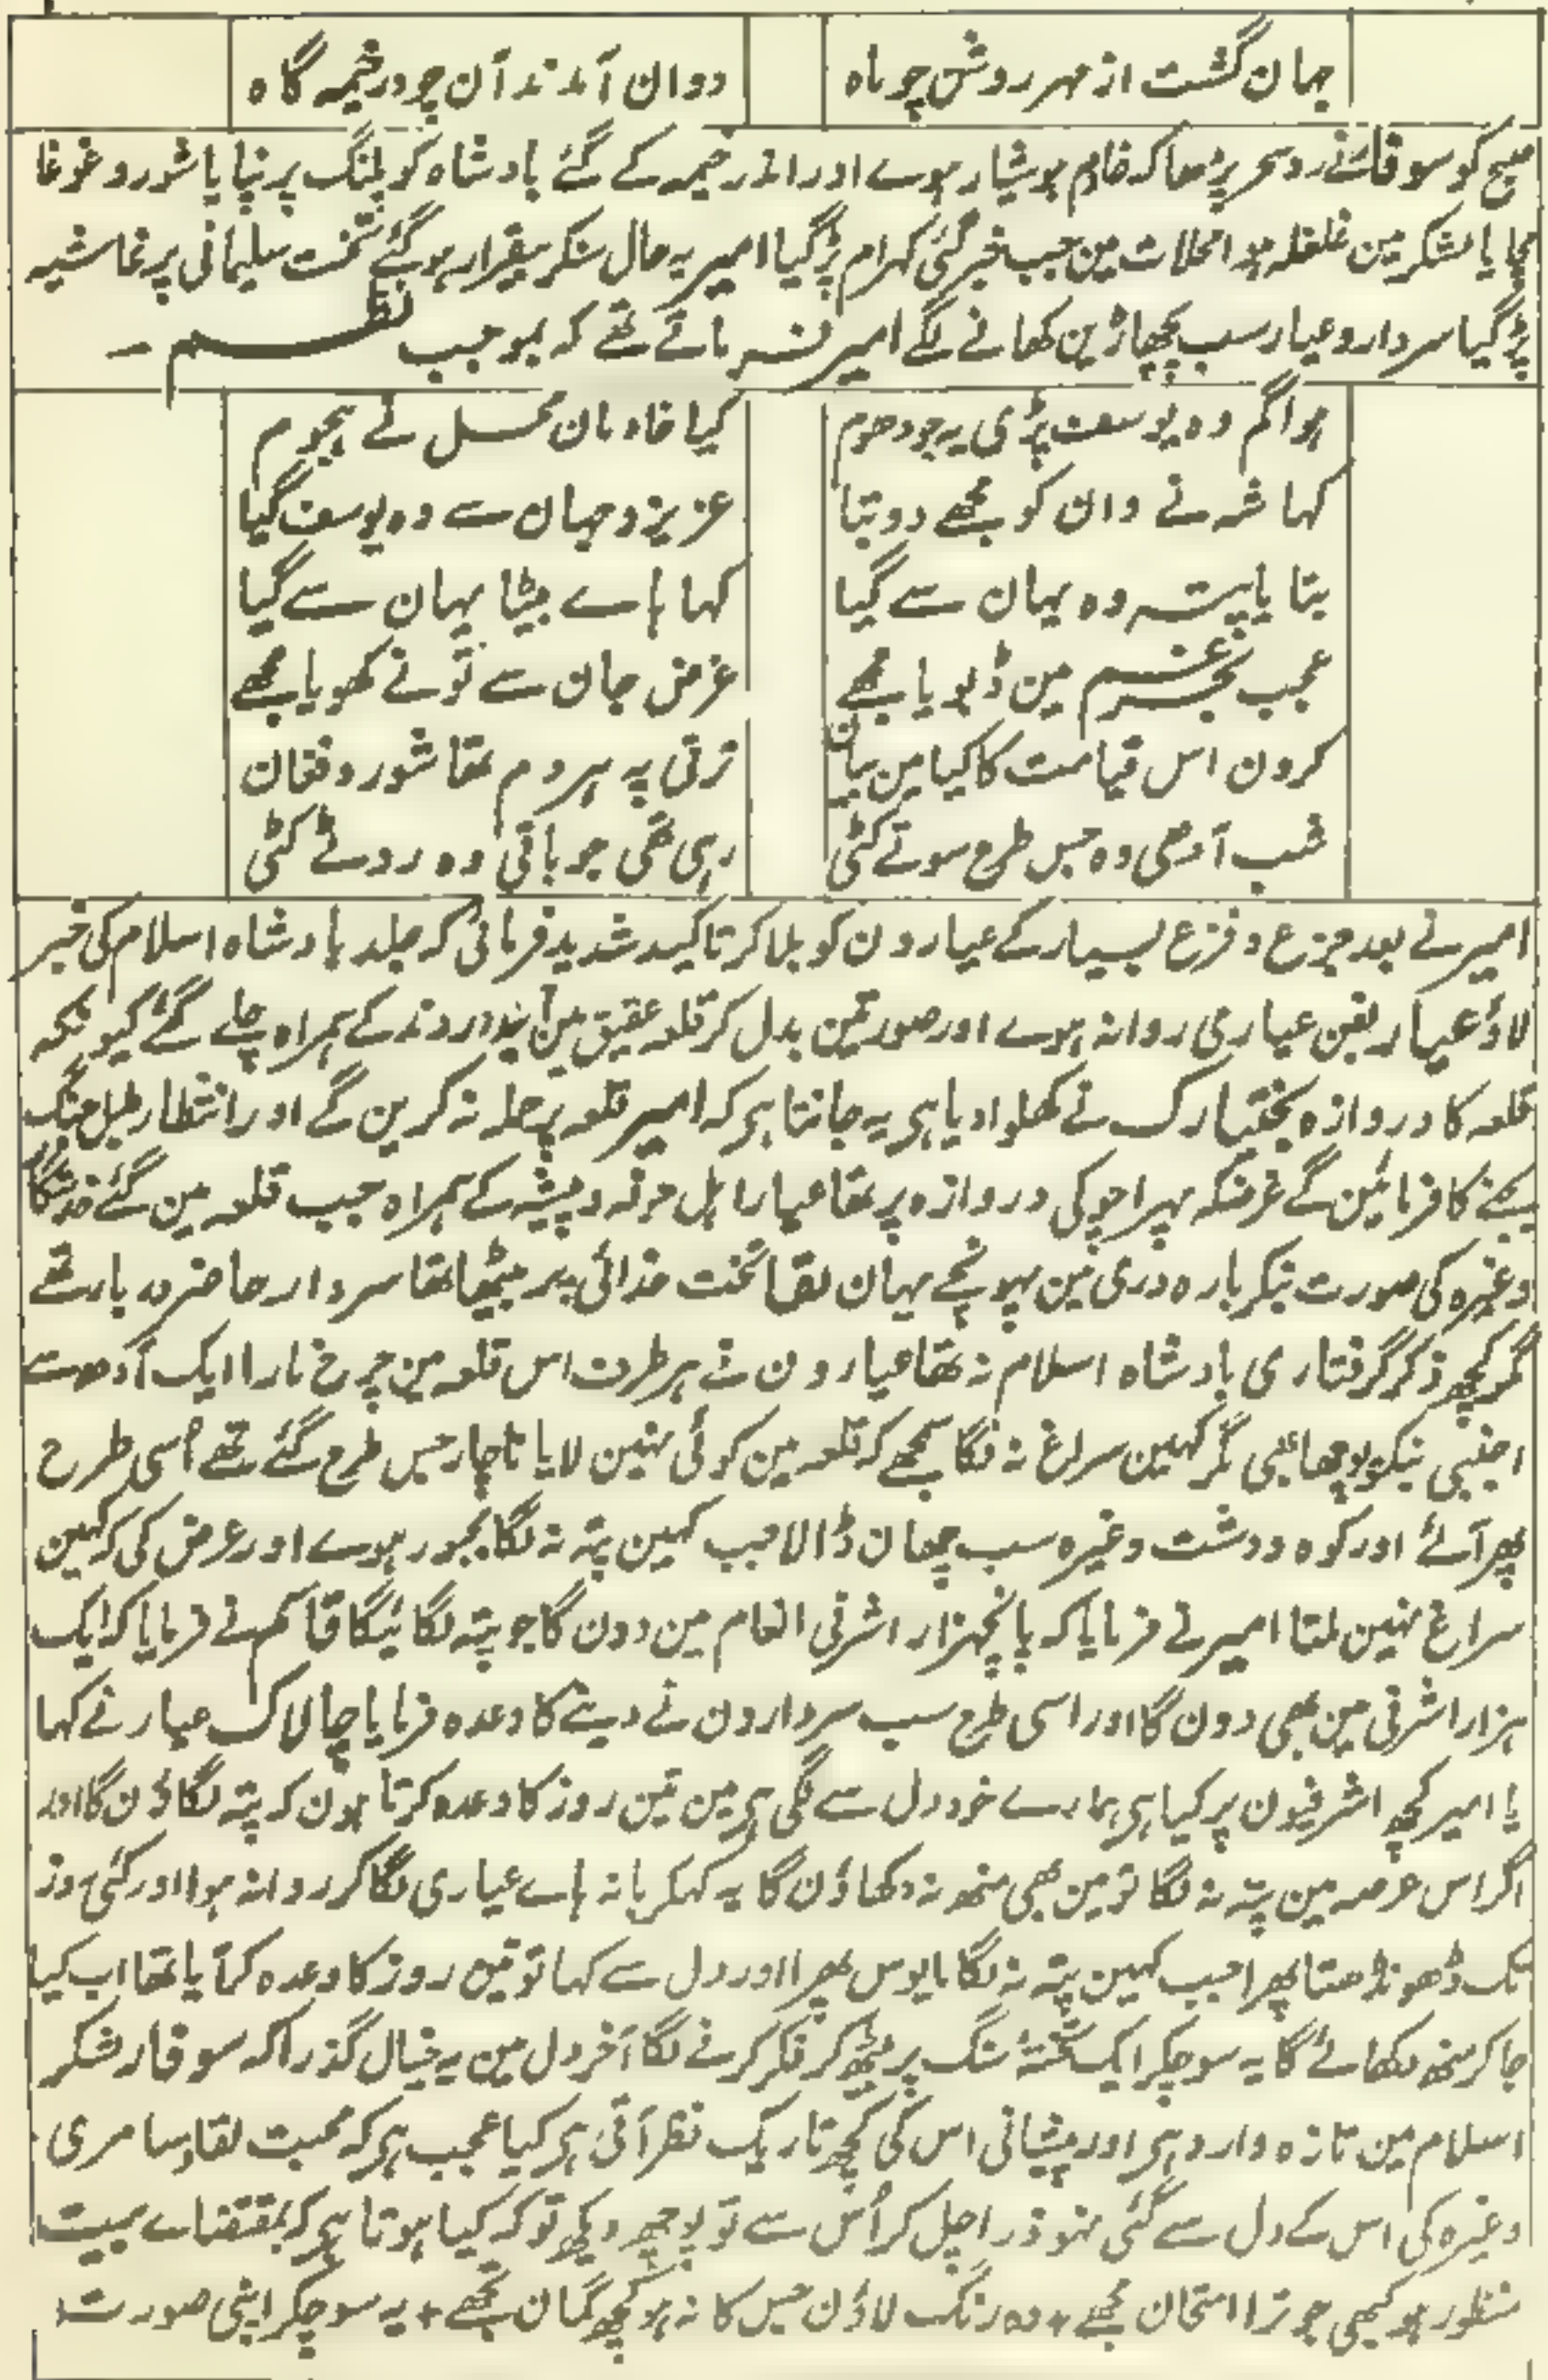 جہان گشت از مہر روشن چو ماہ دوان آمدند آن چو در خیمہ گاہ
صبح کو سوفار نے رد سحر پڑھا کہ خادم ہوشیار ہوے اور اندر خیمہ کے گئے بادشاہ کو پلنگ پر نپایا شور و غوغا
مچایا لشکر مین غلغلہ ہوا محلات مین جب خبر گئی کہرام پڑگیا امیر یہ حال سنکر بیقرار ہوگئے تخت سلیمانی پر غاشیہ
پڑگیا سردار و عیار سب پچھاڑین کھانے لگے امیر فرماتے تھے کہ بموجب نظم
ہوا گم وہ یوسف پڑی یہ جو دھوم کیا خادمان محل نے ہجوم
کہا شہ نے وان کو مجھے دو بتا عزیزو جہان سے وہ یوسف گیا
بتایا پتہ وہ یہان سے گیا کہا ہاے بیٹا یہان سے گیا
عجب بحر غم مین ڈبویا مجھے غرض جان سے تونے کھویا مجھے
کرون اس قیامت کا کیا مین بیان ترقی پہ ہر دم تھا شور و فغان
شب آدھی وہ جس طرح سوتے کٹی رہی تھی جو باقی وہ روتے کٹی
امیر نے بعد جزع و فزع بسیار کے عیارون کو بلا کر تاکید شدید فرمائی کہ جلد بادشاہ اسلام کی خبر
لاؤ عیار بفن عیاری روانہ ہوے اور صورتین بدل کر قلعہ عقیق مین آیند و روند کے ہمراہ چلے گئے کیونکہ
قلعہ کا دروازہ بختیارک نے کھلوا دیا ہی یہ جانتا ہی کہ امیر قلعہ پر حملہ نہ کرین گے اور انتظار طبل جنگ
بجنے کا فرمائین گے غرضکہ پہرا چوکی دروازہ پر تھا عیار اہل حرفہ و پیشہ کے ہمراہ جب قلعہ مین گئے خدمتگار
وغیرہ کی صورت بنکر بارہ دری مین پہونچے یہان لقا تخت خدائی پر بیٹھا تھا سردار حاضر دربار تھے
مگر کچھ ذکر گرفتاری بادشاہ اسلام نہ تھا عیارون نے ہر طرف اس قلعہ مین چرخ مارا ایک آدھ سے
اجنبی بنکر پوچھا بھی مگر کہین سراغ نہ لگا سمجھے کہ قلعہ مین کوئی نہین لایا ناچار جس طرح گئے تھے اُسی طرح
پھر آئے اور کوہ و دشت وغیرہ سب چھان ڈالا جب کہین پتہ نہ لگا مجبور ہوے اور عرض کی کہ کہین
سراغ نہین ملتا امیر نے فرمایا کہ پانچہزار اشرفی انعام مین دون گا جو پتہ لگائیگا قاسم نے فرمایا کہ ایک
ہزار اشرفی مین بھی دون گا اور اسی طرح سب سردارون نے دینے کا وعدہ فرمایا چالاک عیار نے کہا
یا امیر کچھ اشرفیون پر کیا ہی ہمارے خود دل سے لگی ہی مین تین روز کا وعدہ کرتا ہون کہ پتہ لگاؤن گا اور
اگر اس عرصہ مین پتہ نہ لگا تو مین بھی منھ نہ دکھاؤن گا یہ کہکر بانہ ہاے عیاری لگا کر روانہ ہوا اور کئی روز
تک ڈھونڈھتا پھرا جب کہین پتہ نہ لگا مایوس پھرا اور دل سے کہا تو تین روز کا وعدہ کر آیا تھا اب کیا
جا کر منھ دکھائے گا یہ سوچکر ایک تختۂ سنگ پر بیٹھ کر فکر کرنے لگا آخر دل مین یہ خیال گذرا کہ سوفار لشکر
اسلام مین تازہ وارد ہی اور پیشانی اس کی کچھ تاریک نظر آتی ہی کیا عجب ہی کہ محبت لقا و سامری
وغیرہ کی اس کے دل سے گئی نہو ذرا چل کر اُس سے تو پوچھ دیکھ تو کہ کیا ہوتا ہی کہ بمقتضاے بیت
منظور ہو کبھی جو ترا امتحان مجھے ٭ وہ رنگ لاؤن جس کا نہ ہو کچھ گمان تجھے ٭ یہ سوچکر اپنی صورت